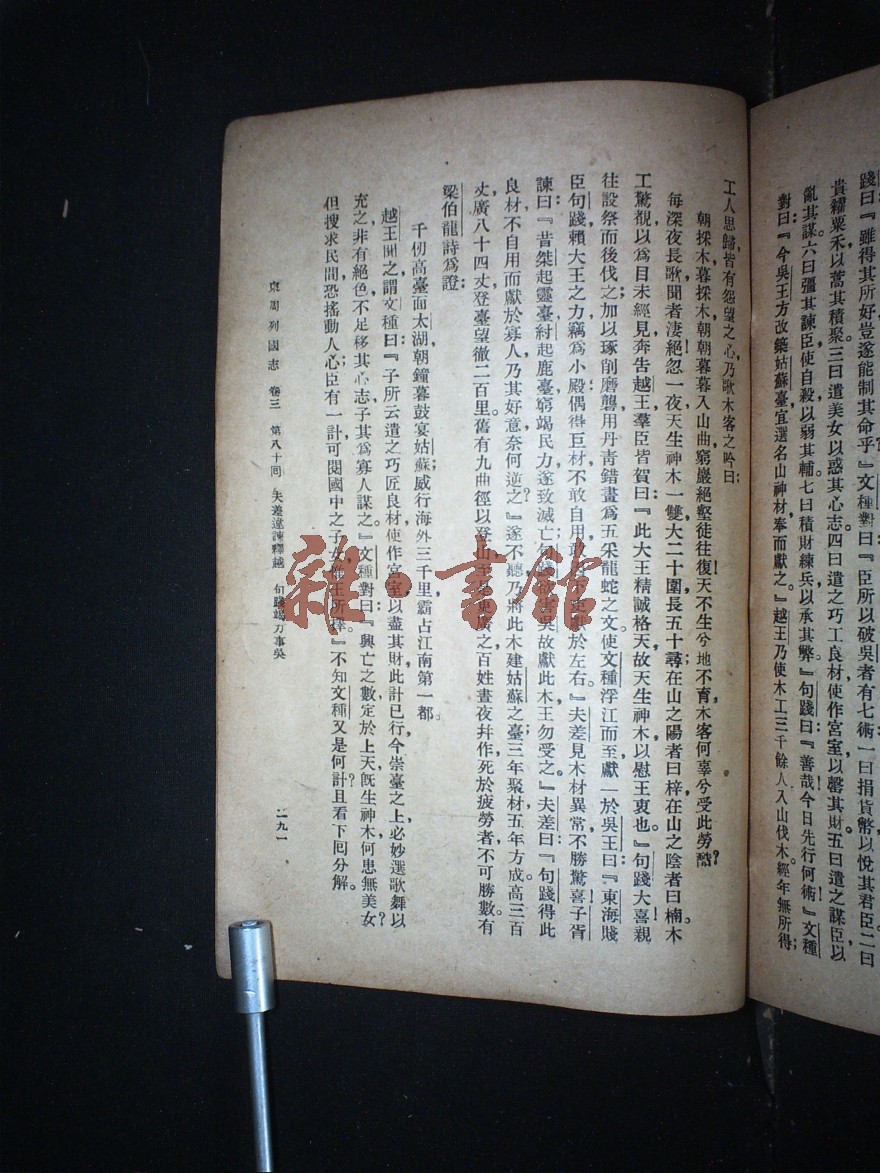 踐曰『雖得其所好豈遂能制其命乎』文種對曰『臣所以破吳者有七術一曰捐貨幣以悅其君臣二曰
貴糴粟禾以蒿其積聚三曰遺美女以惑其心志四曰遺之巧工良材使作宮室以罄其財五曰遺之謀臣以
亂其謀六曰彊其諫臣使自殺以弱其輔七曰積財練兵以承其弊』句踐曰『善哉今日先行何術』文種
對曰『今吳王方改築姑蘇臺宜選名山神材奉而獻之』越王乃使木工三千餘人入山伐木經年無所得
工人思歸皆有怨望之心乃歌木客之吟曰
朝採木暮採木朝朝暮暮入山曲窮巖絕壑徒往復天不生兮地不育木客何辜兮受此勞酷
每深夜長歌聞者淒絕忽一夜天生神木一雙大二十圍長五十尋在山之陽者曰梓在山之陰者曰楠木
工驚覩以爲目未經見奔告越王羣臣皆賀曰『此大王精誠格天故天生神木以慰王衷也』句踐大喜親
往設祭而後伐之加以琢削磨礱用丹靑錯畫爲五采龍蛇之文使文種浮江而至獻於吳王曰『東海賤
臣句踐賴大王之力竊爲小殿偶得巨材不敢自用敢因下吏獻於左右』夫差見木材異常不勝驚喜子胥
諫曰『昔桀起靈臺紂起鹿臺窮竭民力遂致滅亡句踐欲害吳故獻此木王勿受之』夫差曰『句踐得此
良材不自用而獻於寡人乃其好意奈何逆之』遂不聽乃將此木建姑蘇之臺三年聚材五年方成高三百
丈廣八十四丈登臺望徹二百里舊有九曲徑以登山至是更廣之百姓晝夜幷作死於疲勞者不可勝數有
梁伯龍詩爲證
千仞高臺面太湖朝鐘暮鼓宴姑蘇威行海外三千里霸占江南第一都
越王聞之謂文種曰『子所云遺之巧匠良材使作宮室以盡其財此計已行今崇臺之上必妙選歌舞以
充之非有絕色不足移其心志子其爲寡人謀之』文種對曰『興亡之數定於上天旣生神木何患無美女
但搜求民間恐搖動人心臣有一計可閱國中之子女惟王所擇』不知文種又是何計且看下囘分解
東周列國志 卷三 第八十囘 夫差違諫釋越 句踐竭力事吳 二九一
雜·書館